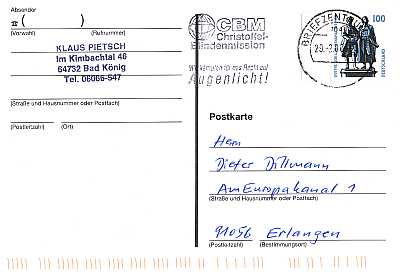 Absender
☎ ( )
(Vorwahl) (Rufnummer)
KLAUS PIETSCH
Im Kimbachtal 40
64732 Bad König
Tel. 06066-547
(Straße und Hausnummer oder Postfach)
(Postleitzahl) (Ort)
CBM
Christoffel-
Blindenmission
Wir kämpfen für das Recht auf
Augenlicht!
BRIEFZENTRUM
100
DEUTSCHLAND
Postkarte
Herrn
Dieter Dillmann
Am Europakanal 1
(Straße und Hausnummer oder Postfach)
91056 Erlangen
(Postleitzahl) (Bestimmungsort)